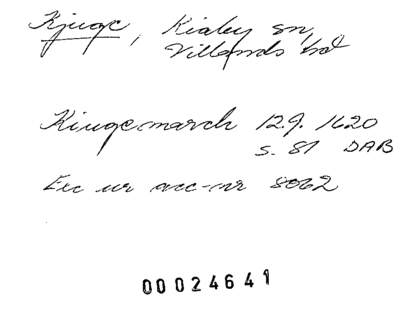 Kjuge, Kiaby sn,
Villands hd
Kiugemarch 12.9. 1620
s. 81 DAB
Exc ur acc-nr 8062
00024641